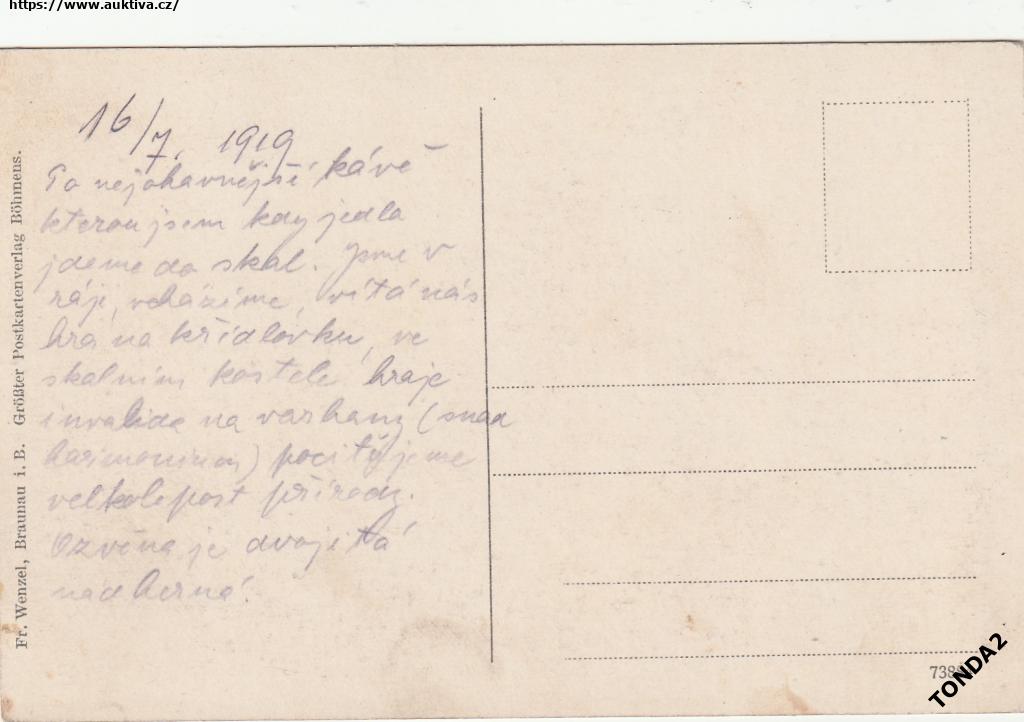 https://www.auktiva.cz/
16/7. 1919
Po nejohavnější kávě
kterou jsem kdy jedla
jdeme do skal. Jsme v
ráji, vcházíme, vítá nás
hra na křídlovku, ve
skalním kostele hraje
invalida na varhany (snad
harmonium) pociťujeme
velkolepost přírody.
Ozvěna je dvojitá
nádherná.
Fr. Wenzel, Braunau i. B. Größter Postkartenverlag Böhmens.
TONDA2